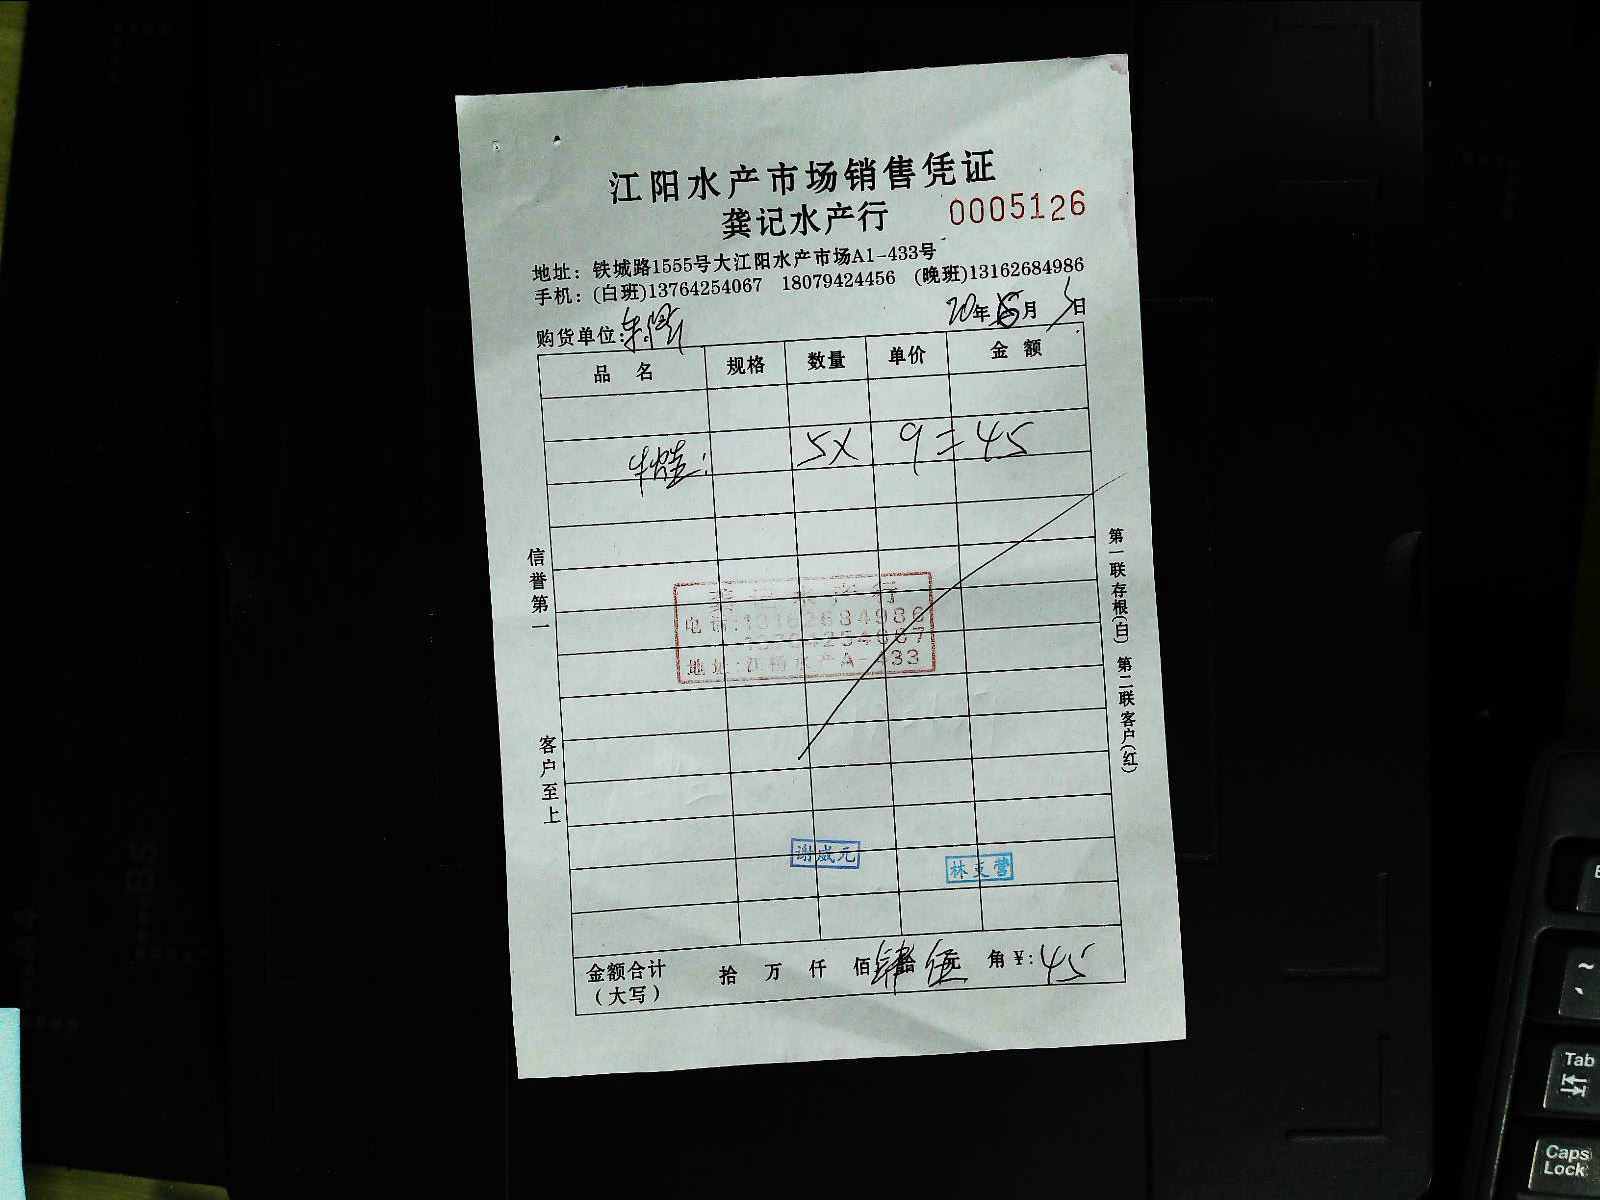 江阳水产市场销售凭证
龚记水产行 0005126
地址：铁城路1555号大江阳水产市场A1-433号
手机：(白班)13764254067 18079424456 (晚班)13162684986
购货单位： 20年 月 日
品 名 规格 数量 单价 金 额
5X 9=45
信誉第一
客户至上
第一联存根(白) 第二联客户(红)
龚记水产行
电话:13162684986
13764254067
地址:江杨水产A-433
谢成元 林支营
金额合计 拾 万 仟 佰肆拾伍元 角 ¥:45
（大写）
B5
A4
~
Tab
Caps
Lock